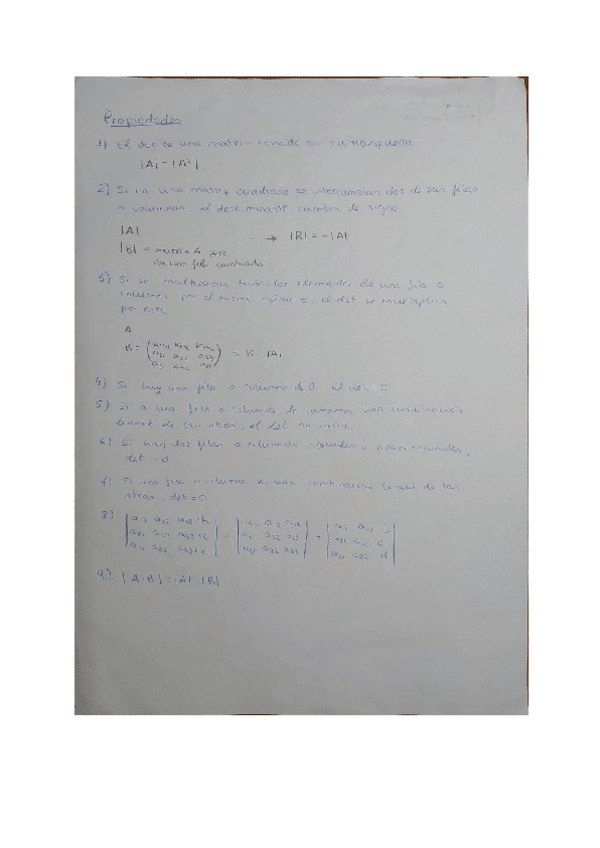 Propiedades
1) El det de una matriz coincide con su traspuesta
|A| = |Aᵗ|
2) Si en una matriz cuadrada se intercambian dos de sus filas
o columnas, el determinante cambia de signo.
|A|
→ |B| = -|A|
|B| = matriz A pero
con una fila cambiada
3) Si se multiplican todos los elementos de una fila o
columna por el mismo número, el det. se multiplica
por este.
A
B = = K |A|
4) Si hay una fila o columna de 0, el det = 0
5) Si a una fila o columna le sumamos una combinación
lineal de las otras, el det no varía.
6) Si hay dos filas o columnas iguales o proporcionales,
det = 0
7) Si una fila o columna es una combinación lineal de las
otras, det = 0
8)
9) |A·B| = |A| |B|